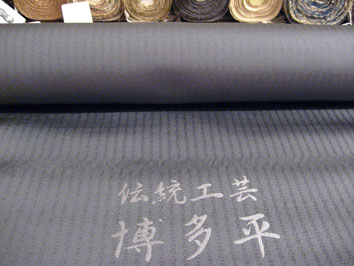 伝統工芸
博多平